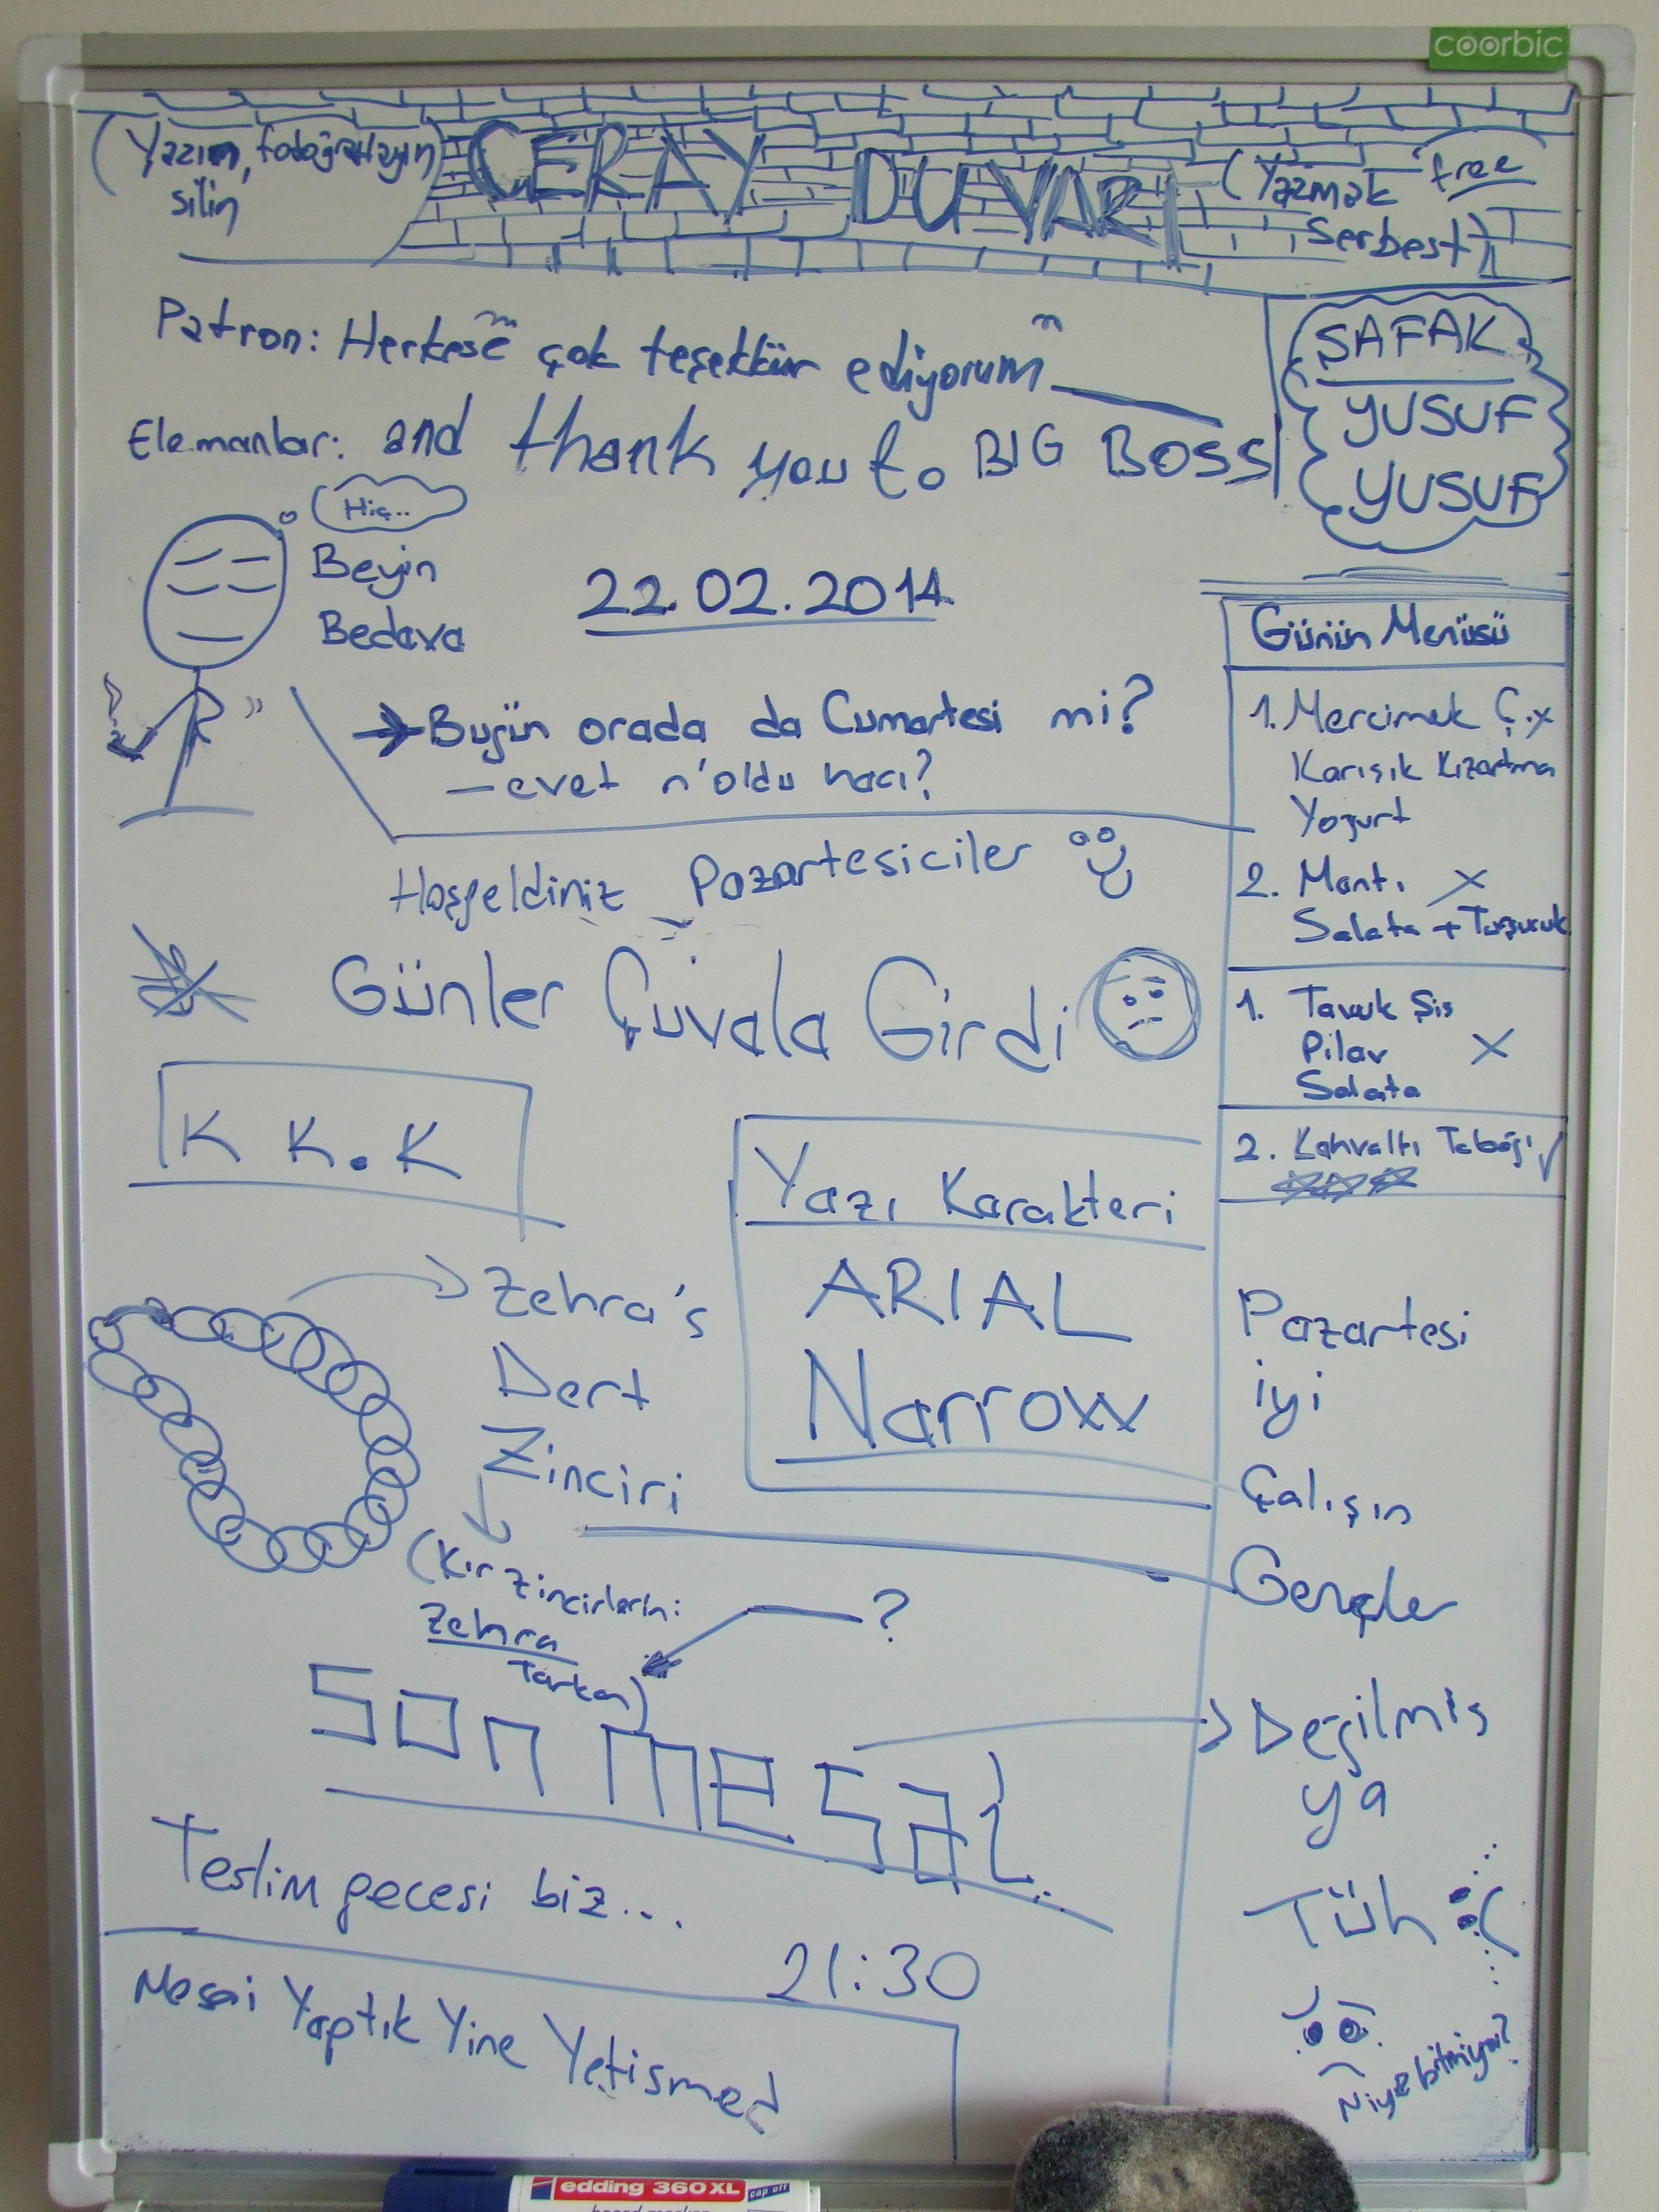 coorbic
(Yazın, fotoğraflayın,
silin
CERAY DUVARI
(Yazmak free
Serbest)
Patron: Herkese çok teşekkür ediyorum
Elemanlar: and thank you to BIG BOSS
ŞAFAK
YUSUF
YUSUF
Hiç..
Beyin
Bedava
22.02.2014
→Bugün orada da Cumartesi mi?
—evet n'oldu hacı?
Hoşgeldiniz Pazartesiciler
Günler Çuvala Girdi
K K.K
Yazı Karakteri
ARIAL
Narrow
Günün Menüsü
1. Mercimek Ç. x
Karışık Kızartma
Yoğurt
2. Mantı X
Salata +
1. Tavuk Şis
Pilav X
Salata
2. Kahvaltı Tabağı √
Zehra's
Dert
Zinciri
(Kır zincirlerini:
Zehra
Tarkan)
?
Son mesai..
Teslim gecesi biz...
21:30
Mesai Yaptık Yine Yetismed
Pazartesi
iyi
Çalışın
Gençler
Değilmis
ya
Tüh :(
Niye bitmiyor?
edding 360 XL
cap off
board marker